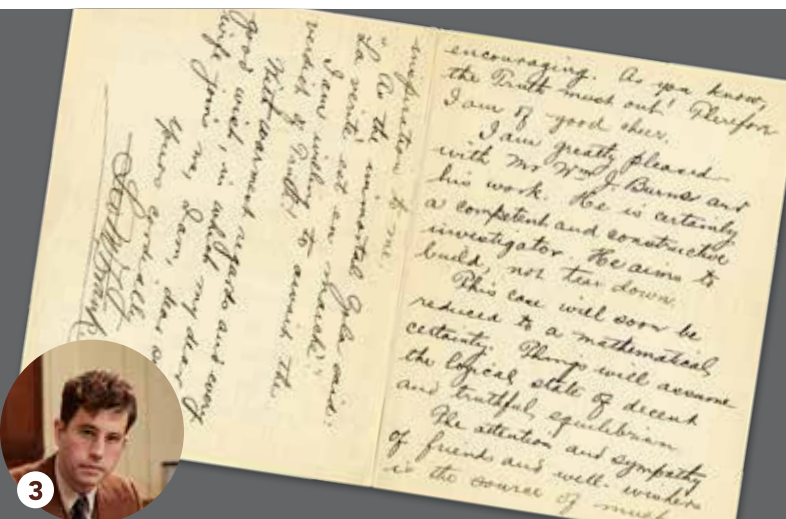 encouraging. As you know,
the Truth must out! Therefore
I am of good cheer.
I am greatly pleased
with Mr Wm J. Burns and
his work. He is certainly
a competent and constructive
investigator. He aims to
build, not tear down.
This case will soon be
reduced to a mathematical
certainty. Things will assume
the logical state of decent
and truthful equilibrium.
The attention and sympathy
of friends and well-wishers
is the source of much
inspiration to me.
As the immortal Zola said:
"La verité est en marche"
I am wishing to await the
verdict of Truth!
With warmest regards and every
good wish, in which my dear
wife joins me, I am, dear
Yours cordially
Leo M. Frank
3